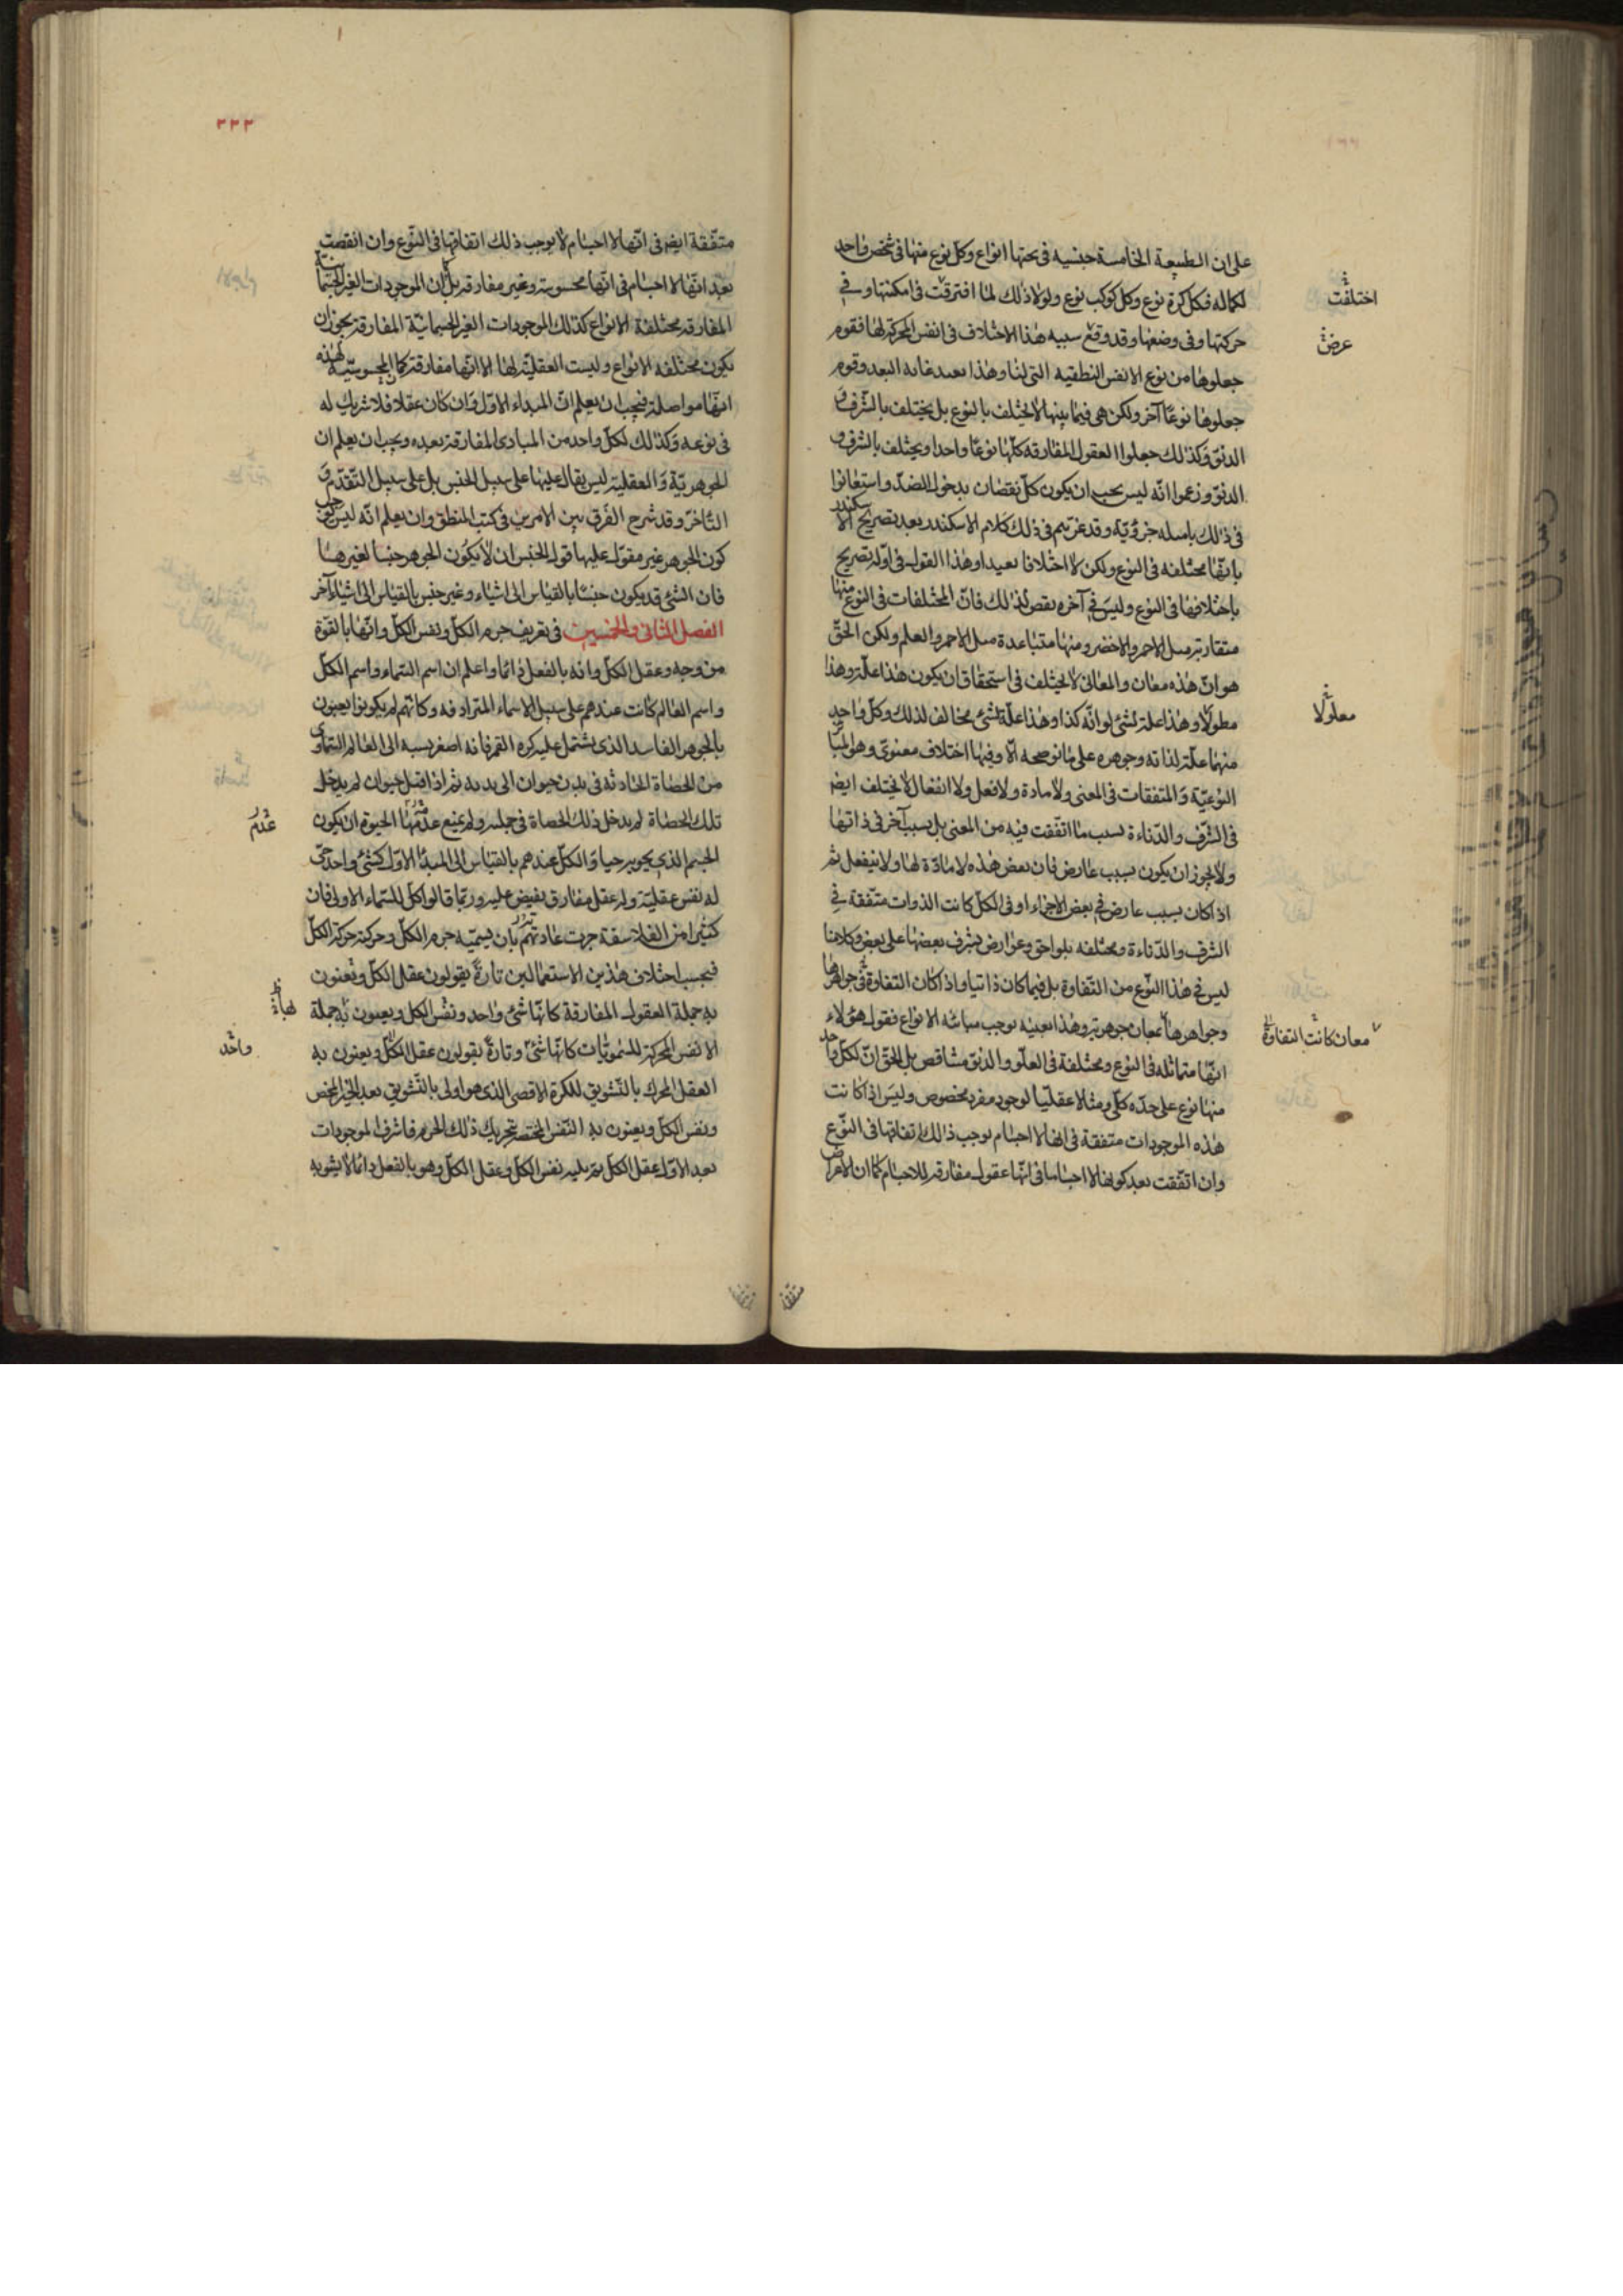 على ان الطبيعة الخامسة جنسيه فى تحتها انواع وكل نوع منها فى شخص واحد
لكماله فكل كرة نوع وكل كوكب نوع ولولا ذلك لما افترقت فى امكنتها وفى
حركتها وفى وضعها وقد وقع سببه هذا الاختلاف فى انفس المحركة لها فقوم
جعلوها من نوع الانفس النطقيه التى لنا وهذا بعيد غايه البعد وقوم
جعلوها نوعا آخر ولكن هى فيما بينها لا يختلف بالنوع بل يختلف بالشرف و
الدنوّ وكذلك جعلوا العقول المفارقة كلّها نوعا واحدا ويختلف بالشرف و
الدنوّ وزعموا انّه ليس يجب ان يكون كلّ نقصان بدخول الضدّ واستعانوا
فى ذلك بامسله جزؤيّة وقد غرّهم فى ذلك كلام الاسكندر بعد تصريح الاسكندر
بانّها مختلفه فى النوع ولكن لا اختلافا بعيدا وهذا القول فى اوّله تصريح
باختلافها فى النوع وليس فى آخره نقض لذلك فانّ المختلفات فى النوع منها
متقاربة مثل الاحمر والاخضر ومنها متباعدة مثل الاحمر والعلم ولكن الحقّ
هو انّ هذه معان والمعانى لا يختلف فى استحقاق ان يكون هذا علّة وهذا
معلولا وهذا علة لشئ لو انّه كذا وهذا علّة لشئ مخالف لذلك وكلّ واحد
منهما علّة لذاته وجوهره على ما نوضحه الّا وفيها اختلاف معنوىّ وهو
النوعيّة والمتفقات فى المعنى ولا مادة ولا فعل ولا انفعال لا يختلف ايضا
فى الشرف والدّناءة بسبب ما اتّفقت فيه من المعنى بل بسبب آخر فى ذاتها
ولا يجوز ان يكون بسبب عارض فان بعض هذه لا مادّة لها ولا ينفعل ثم
اذا كان بسبب عارض فى بعض الاجزاء او فى الكلّ كانت الذوات متّفقة فى
الشرف والدّناءة ومختلفه بلواحق وعوارض يشرف بعضها على بعض وكلامنا
ليس فى هذا النّوع من التّفاوة بل فيما كان ذاتيا واذا كان التفاوة فى جواهرها
وجواهرها معان جوهرية وهذا بعينه يوجب مباينه الانواع فقول هؤلاء
انّها متماثله فى النوع ومختلفة فى العلّو والدنوّ متناقض بل الحقّ انّ لكلّ واحد
منها نوع على حدّه كلّى ومثالا عقليّا لوجود مفرد مخصوص وليس اذا كانت
هذه الموجودات متفقة فى انها لا اجسام يوجب ذلك اتفاقها فى النّوع
وان اتّفقت بعد كونها لا اجساما فى انّها عقول مفارقه للاجسام كما ان الاعراض
متفقة
اختلفت
عرض
معلولا
معان كانت التفاوة
٣٣٣
متّفقة ايضا فى انّها لا اجسام لا يوجب ذلك اتفاقها فى النّوع وان اتفقت
بعد انّها لا اجسام فى انّها محسوسة وغير مفارقة بل ان الموجودات الغير الجسمانيّة
المفارقة مختلفة الانواع كذلك الموجودات الغير الجسمانيّة المفارقة يجوز ان
يكون مختلفه الانواع وليست العقليّة لها الا انّها مفارقة كما المحسوسيّة لهذه
انّها مواصلة فيجب ان يعلم انّ المبداء الاوّل وان كان عقلا فلا شريك له
فى نوعه وكذلك لكلّ واحد من المبادى المفارقة بعده ويجب ان يعلم ان
الجوهريّة والعقلية ليس يقال عليها على سبيل الجنس بل على سبيل التّقدّم و
التّاخر وقد شرح الفرق بين الامرين فى كتب المنطق وان يعلم انّه ليس
كون الجوهر غير مقول عليها قول الجنس ان لا يكون الجوهر جنسا لغيرها
فان الشئ قد يكون جنسا بالقياس الى اشياء وغير جنس بالقياس الى اشياء آخر
الفصل الثانى والخمسين فى تعريف جرم الكلّ ونفس الكلّ وانّها بالقوّة
من وجه وعقل الكلّ وانه بالفعل دائما واعلم ان اسم السّماء واسم الكلّ
واسم العالم كانت عندهم على سبيل الاسماء المترادفه وكانّهم لم يكونوا يعبون
بالجوهر الفاسد الذى يشتمل عليه كره القمر فانه اصغر نسبه الى العالم السّماوى
من الحصاة الحادثه فى بدن حيوان الى بدنه ثم اذا قيل حيوان لم يدخل
تلك الحصاة لم يدخل ذلك الحصاة فى جملته ولم يمنع عدمها الحيوة ان يكون
الجسم الذى يحويه حيا والكلّ عندهم بالقياس الى المبدأ الاوّل كشئ واحد حىّ
له نفس عقليّة وله عقل مفارق يفيض عليه وربّما قالوا كلّ للسّماء الاولى فان
كثيرا من الفلاسفة جرت عادتهم بان يسميّه جرم الكلّ وحركته حركة الكلّ
فبحسب اختلاف هذين الاستعمالين تارة يقولون عقل الكلّ ويعنون
به جملة العقول المفارقة كانّها شئ واحد ونفس الكل ويعنون به جملة
الانفس المحركة للسّمويّات كانّها شئ وتارة يقولون عقل الكلّ ويعنون به
العقل المحرك بالتّشويق للكرة الاقصى الذى هو اولى بالتّشويق بعد الخير المحض
ونفس الكلّ ويعنون به النّفس المختصّ بتحريك ذلك الجرم فاشرف الموجودات
بعد الاوّل عقل الكلّ ثم يليه نفس الكلّ وعقل الكلّ وهو بالفعل دائما لا يشوبه
عدم
واحد